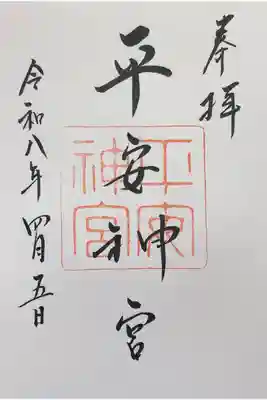 奉拝
平安神宮
平安神宮
令和八年四月五日